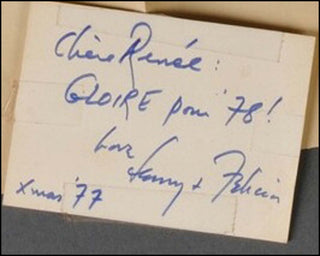 Chère Renée:
GLOIRE pour '78!
Love
Lenny + Felicia
Xmas '77